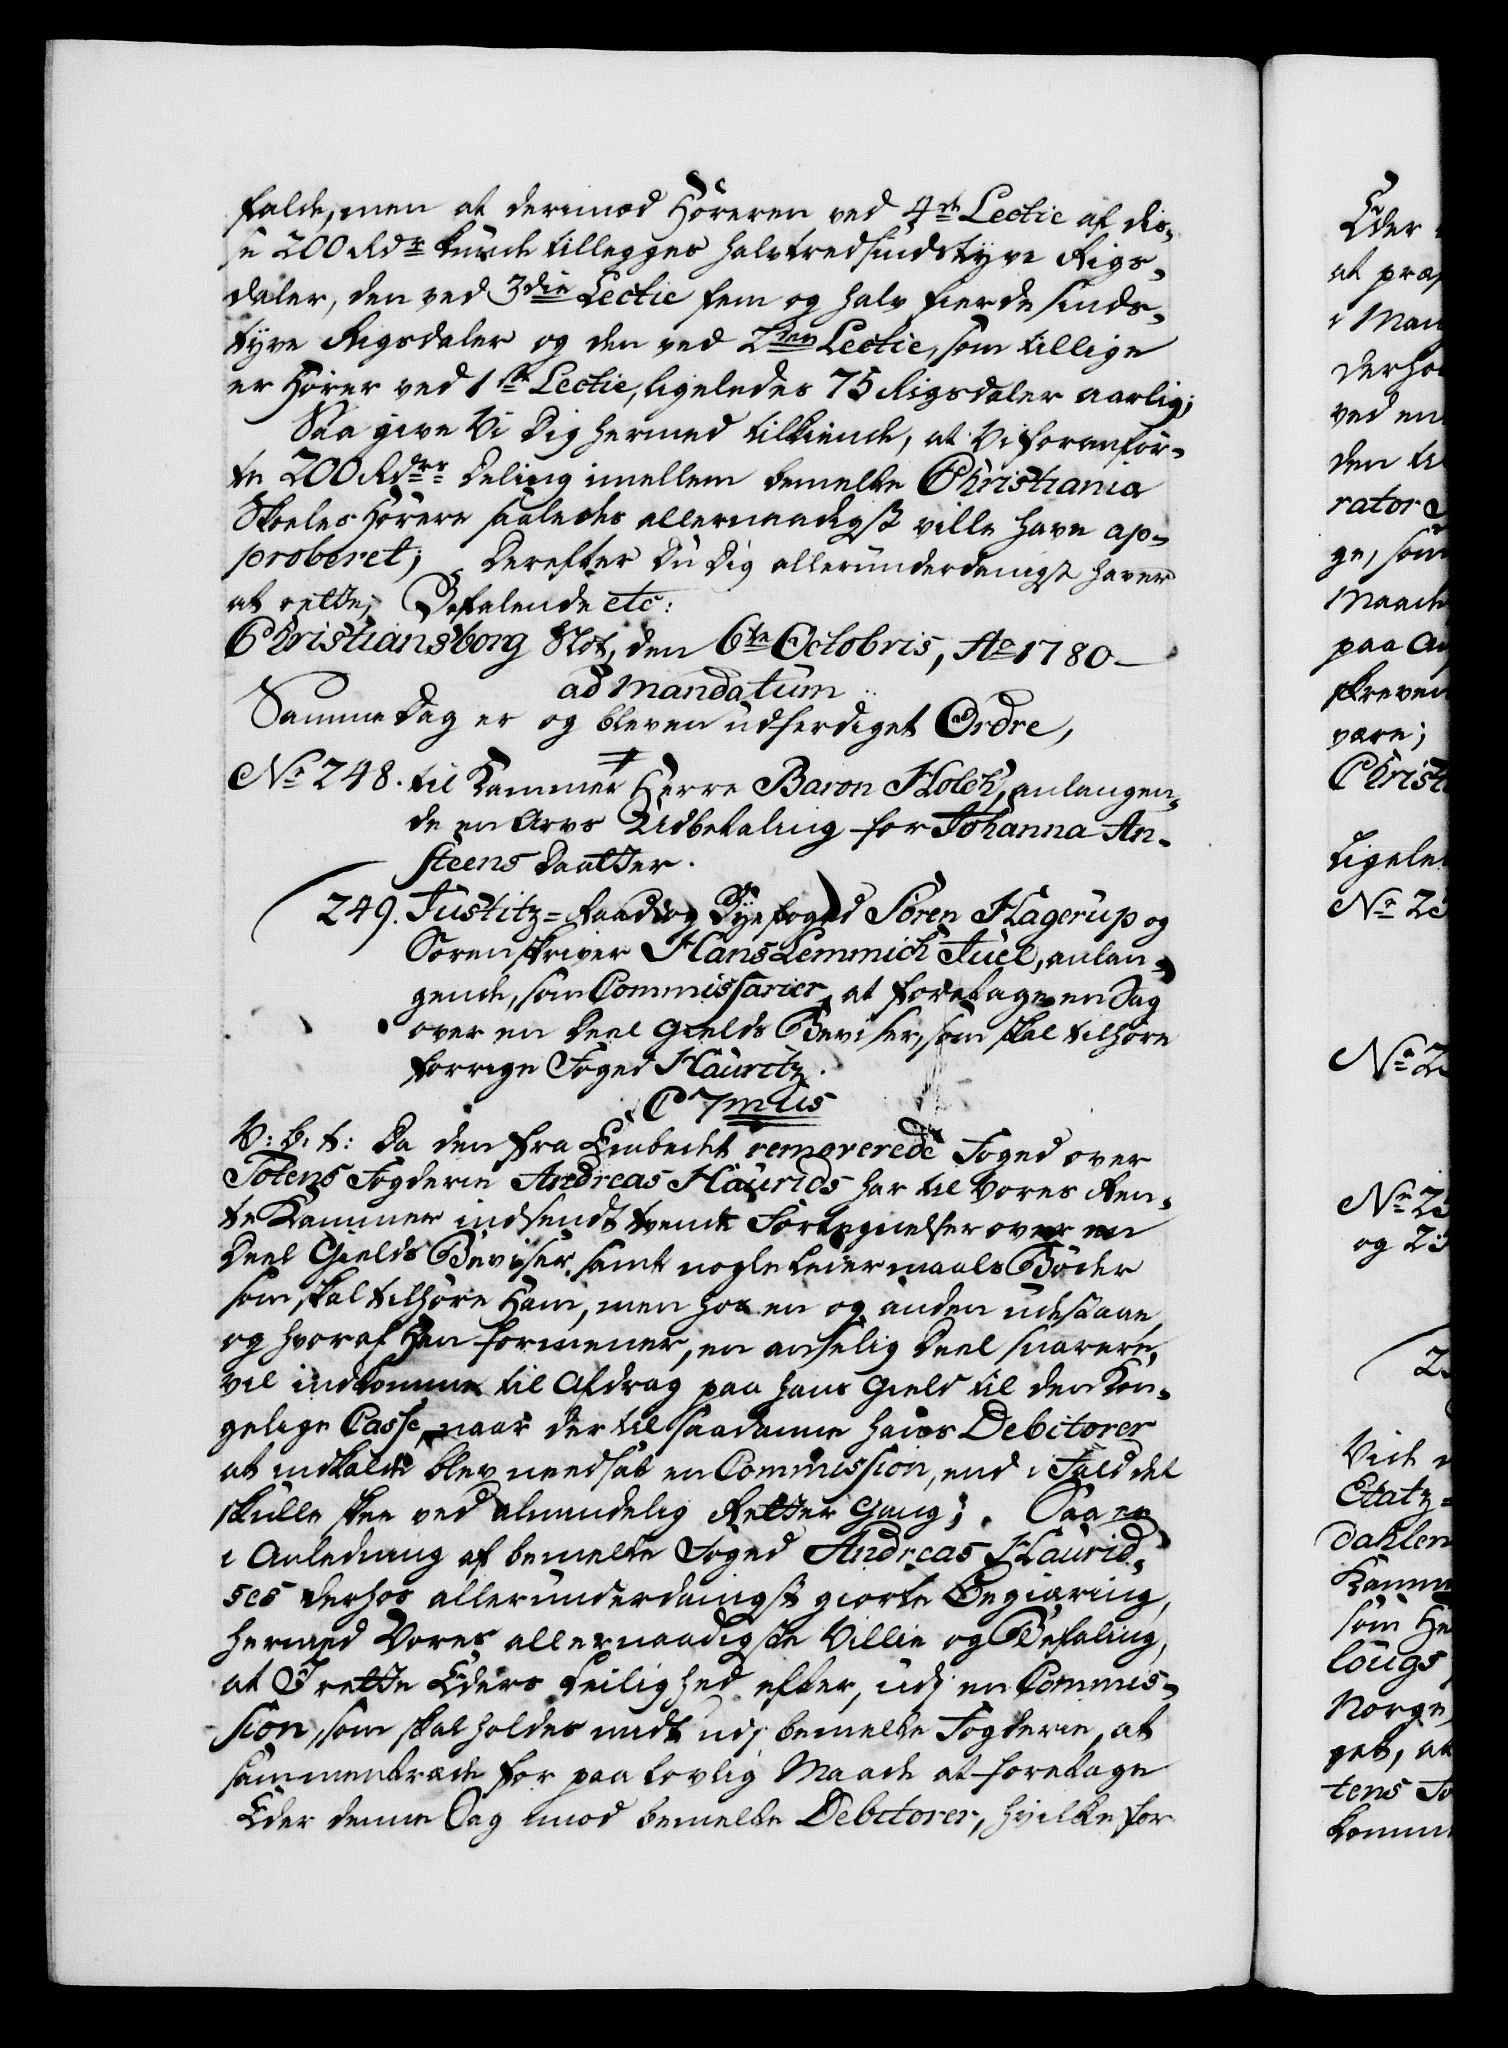 falde, men at derimod Hörerne ved 4de Lectie af dis-
se 200 Rdr kunde tillegges halvtredsindstyve Rigs-
daler, den ved 3die Lectie fem og halv fierde sinds-
tyve Rigsdaler og den ved 2den Lectie, som tillige
er Hører ved 1ste Lectie, ligeledes 75 Rigsdaler aarlig;
Saa give Vi Dig hermed tilkiende, at Vi foranför-
te 200 Rdrs Deling imellem bemelte Christiania
Skoeles Hörere saaledes allernaadigst ville have ap-
proberet; Derefter Du Dig allerunderdanigst haver
at rette; Befalende etc:
Christiansborg Slot, den 6te Octobris, Ao 1780
ad Mandatum
Samme Dag er og bleven udferdiget Ordre,
No 248. til Kammer Herre Baron Holck, anlangen-
de en Arvs Udbetaling for Johanna An-
steens Daatter.
249. Justitz-Raad og Byefoged Sören Hagerup og
Sorenskriver Hans Lemmich Juel, anlan-
gende, som Commissarier, at foretage en Sag
over en Deel Gields Beviser, som skal tilhöre
forrige Foged Hauritz.
C 7mus
V: G: T: Da den fra Embedet removerede Foged over
Totens Fogderie Andreas Haurids har til Vores Ren-
te Kammer indsendt tvende Fortegnelser over en
Deel Gields Beviser samt nogle Leiermaals Böder
som skal tilhöre Ham, men hos en og anden udestaae,
og hvoraf Han formener, en anselig Deel snarere,
vil indkomme til Afdrag paa hans Gield til den Kon-
gelige Casse, naar der til saadanne hans Debitorer
at indkalde blev needsat en Commission, end i Fald det
skulle skee ved almindelig Retter Gang; Saa er
i Anledning af bemelte Foged Andreas Haurid-
ses derhos allerunderdanigst giorte Begiæring,
hermed Vores allernaadigste Villie og Befaling,
at I rette Eders Leilighed efter, udi en Commis-
sion, som skal holdes midt udi bemelte Fogderie, at
sammentræde for paa lovlig Maade at foretage
Eder denne Sag imod bemelte Debitorer, hvilke for